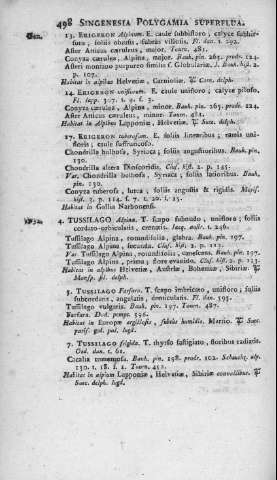 498 SINGENESIA POLYGAMIA SUPERFLUA.
13. ERIGERON Alpinum. E. caule subbifloro; calyce subhir-
suto; foliis obtusis, subtus villosis. Fl. dan. t. 292.
Aster Atticus cæruleus, major. Tourn. 481.
Conyza cærulea, Alpina, major. Bauh. pin. 265. prodr. 124.
Asteri montano purpureo similis s. Globularia. J. Bauh. hist. 2.
p. 107.
Habitat in alpibus Helvetiæ, Carniolæ. ♃ Com. delph.
14. ERIGERON uniflorum. E. caule unifloro; calyce piloso.
Fl. lapp. 307. t. 9. f. 3.
Conyza cærulea, Alpina, minor. Bauh. pin. 265. prodr. 124.
Aster Atticus cæruleus, minor. Tourn. 481.
Habitat in Alpibus Lapponiæ, Helvetiæ. ♃
17. ERIGERON tuberosum. E. foliis linearibus; ramis uni-
floris; caule suffruticoso.
Chondrilla bulbosa, Syriaca; foliis angustioribus. Bauh. pin.
130.
Chondrilla altera Dioscoridis. Clus. hist. 2. p. 145.
Var. Chondrilla bulbosa, Syriaca; foliis latioribus. Bauh.
pin. 130.
Conyza tuberosa, lutea; foliis angustis & rigidis. Moris.
hist. 3. p. 114. f. 7. t. 20. f. 25.
Habitat in Galliæ Narbonensis.
4. TUSSILAGO Alpina. T. scapo subnudo, unifloro; foliis
cordato-orbiculatis, crenatis. Jacq. austr. t. 246.
Tussilago Alpina, rotundifolia, glabra. Bauh. pin. 197.
Tussilago Alpina, secunda. Clus. hist. 2. p. 113.
Var. Tussilago Alpina, rotundifolia; canescens. Bauh. pin. 197.
Tussilago Alpina, prima; flore evanido. Clus. hist. 2. p. 113.
Habitat in alpibus Helvetiæ, Austriæ, Bohemiæ, Sibiriæ. ♃
5. TUSSILAGO Farfara. T. scapo imbricato, unifloro; foliis
subcordatis, angulatis, denticulatis. Fl. dan. 595.
Tussilago vulgaris. Bauh. pin. 197. Tourn. 487.
Farfara. Dod. pempt. 596.
Habitat in Europæ argillosis, subtus humidis. Martio. ♃
7. TUSSILAGO frigida. T. thyrso fastigiato, floribus radiatis.
Cacalia tomentosa. Bauh. pin. 198. prodr. 102. Scheuchz. alp.
130. t. 18. f. 1. Tourn. 452.
Habitat in alpium Lapponiæ, Helvetiæ, Sibiriæ convallibus. ♃